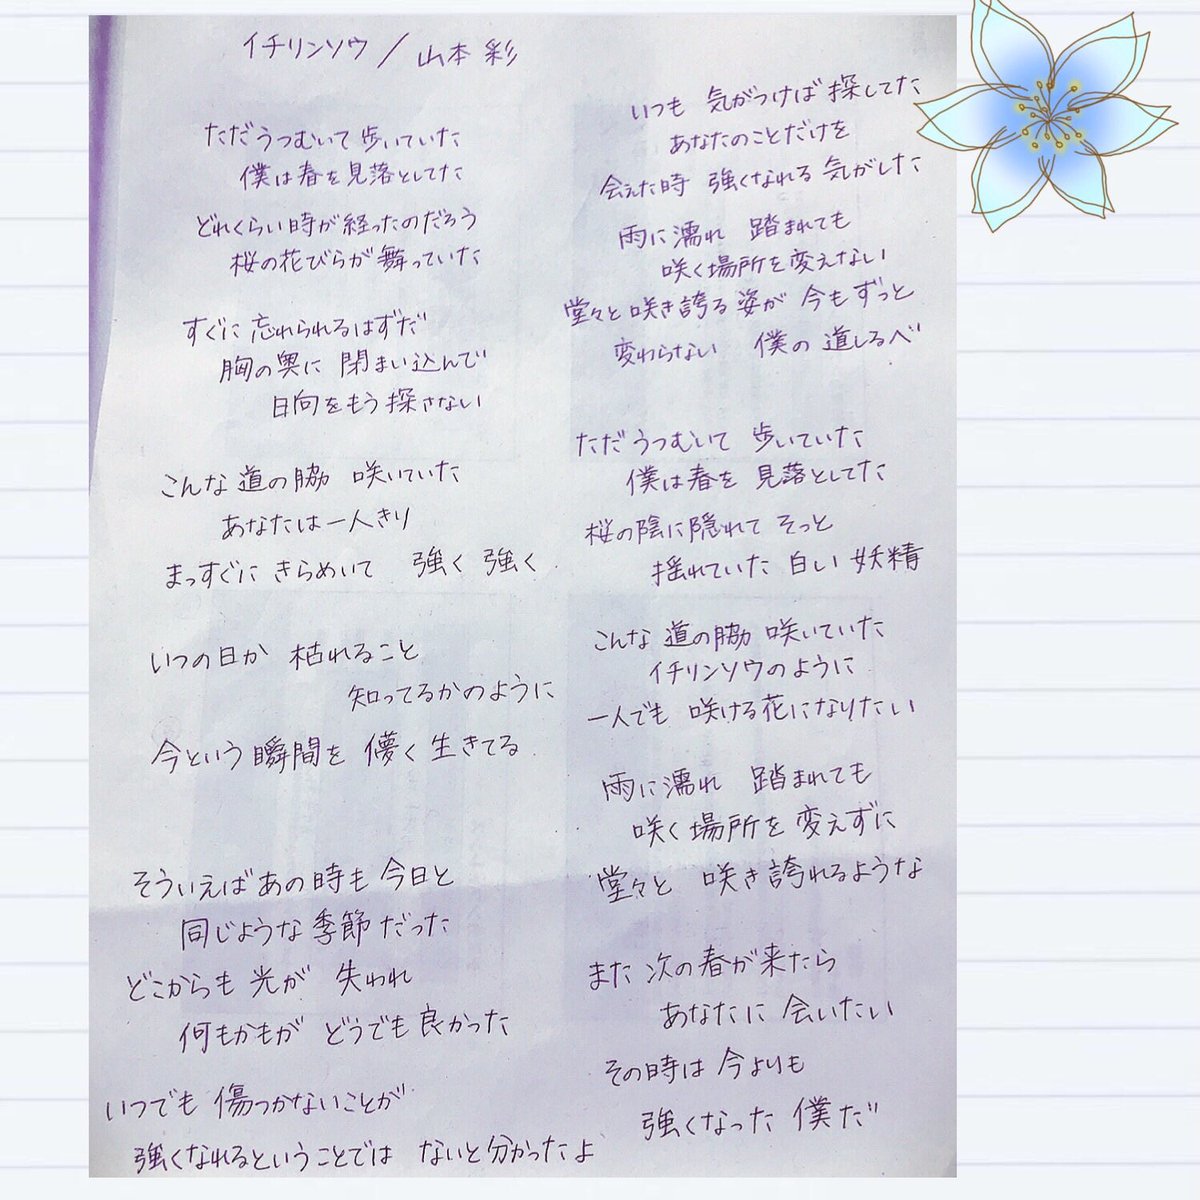 イチリンソウ / 山本 彩
ただうつむいて 歩いていた
僕は春を見落としてた
どれくらい時が経ったのだろう
桜の花びらが舞っていた
すぐに忘れられるはずだ
胸の奥に 閉まい込んで
日向をもう探さない
こんな道の脇 咲いていた
あなたは一人きり
まっすぐに きらめいて 強く 強く
いつの日か 枯れること
知ってるかのように
今という瞬間を 儚く生きてる
そういえばあの時も今日と
同じような季節だった
どこからも光が 失われ
何もかもが どうでも良かった
いつでも 傷つかないことが
強くなれるということでは ないと分かったよ
いつも 気がつけば 探してた
あなたのことだけを
会えた時 強くなれる 気がした
雨に濡れ 踏まれても
咲く場所を変えない
堂々と咲き誇る 姿が 今もずっと
変わらない 僕の道しるべ
ただうつむいて 歩いていた
僕は春を 見落としてた
桜の陰に隠れて そっと
揺れていた 白い 妖精
こんな 道の脇 咲いていた
イチリンソウのように
一人でも 咲ける花になりたい
雨に濡れ 踏まれても
咲く場所を 変えずに
堂々と 咲き誇れるような
また 次の春が来たら
あなたに 会いたい
その時は 今よりも
強くなった 僕だ